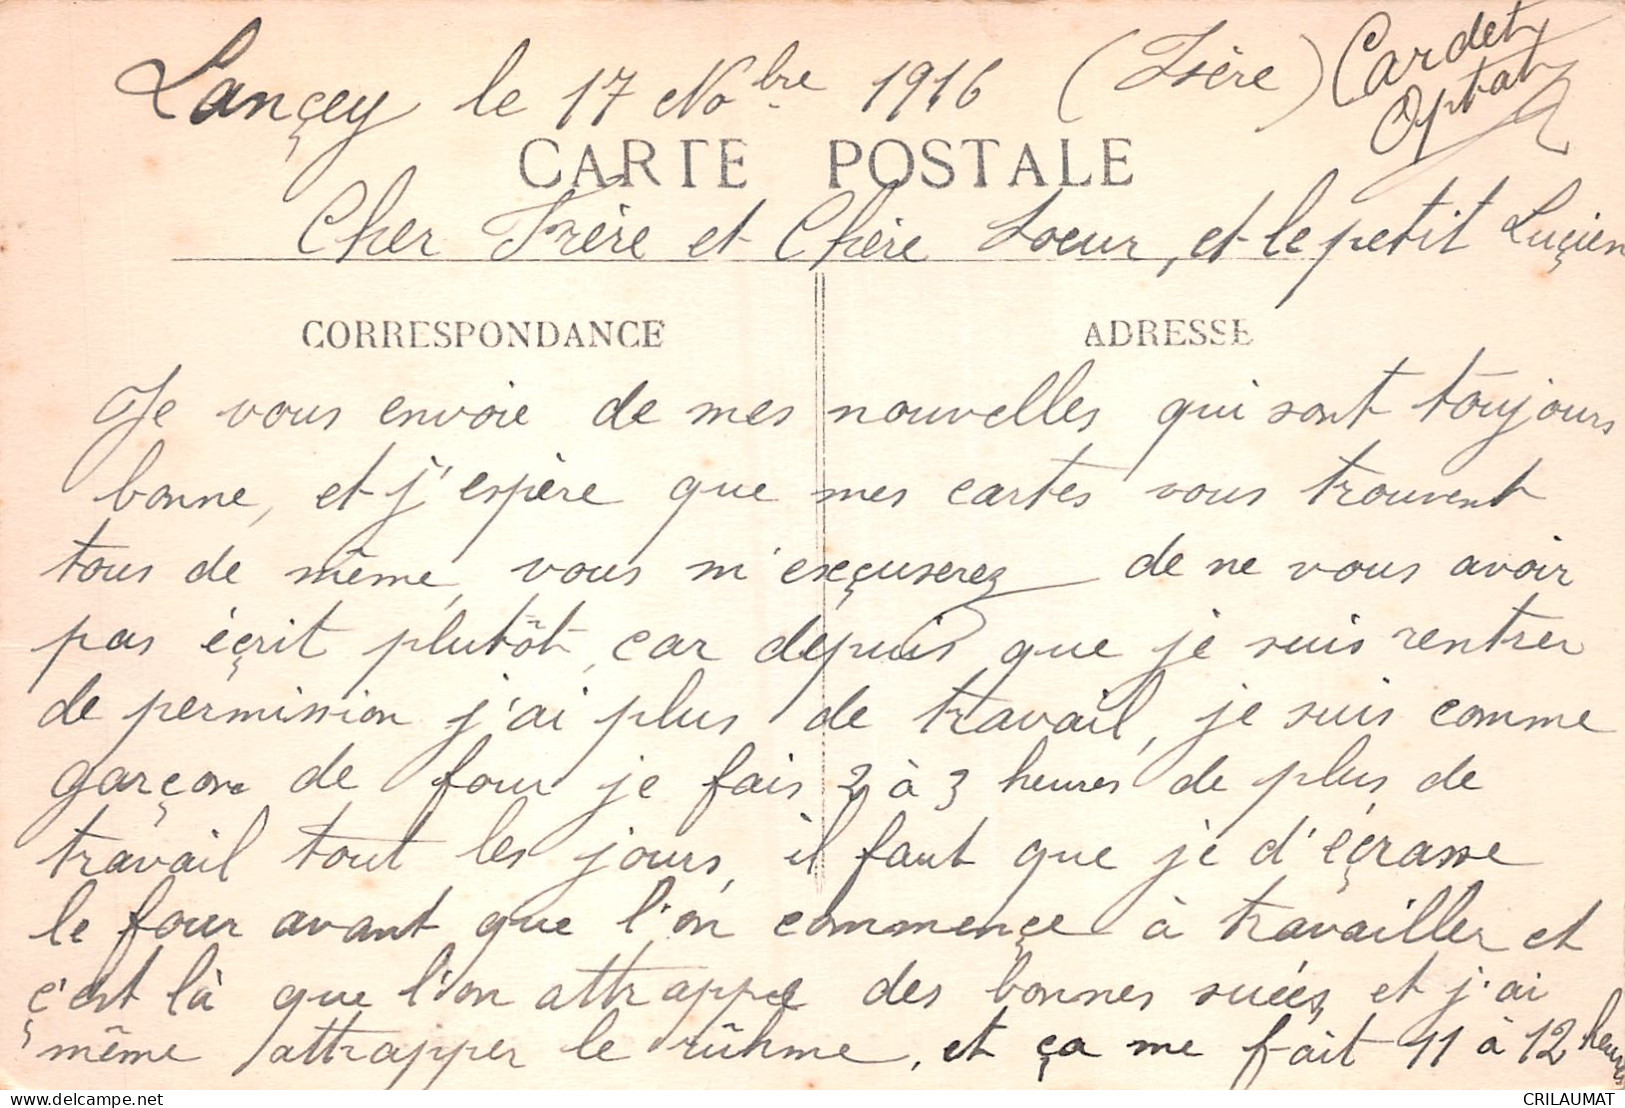 Lançey le 17 Nobre 1916 (Isère) Cardet
Optat
CARTE POSTALE
Cher Frère et Chère Soeur, et le petit Luçien
CORRESPONDANCE ADRESSE
Je vous envoie de mes nouvelles qui sont toujours
bonne, et j'espère que mes cartes vous trouvent
tous de même, vous m'exçuserez de ne vous avoir
pas éçrit plutôt, car depuis que je suis rentrer
de permission j'ai plus de travail, je suis comme
garçon de four je fais 2 à 3 heures de plus de
travail tout les jours, il faut que je d'éçrasse
le four avant que l'on commençe à travailler et
ç'est là que l'on attrappe des bonnes suées, et j'ai
même attrapper le rûhme, et ça me fait 11 à 12 heures
CRILAUMAT